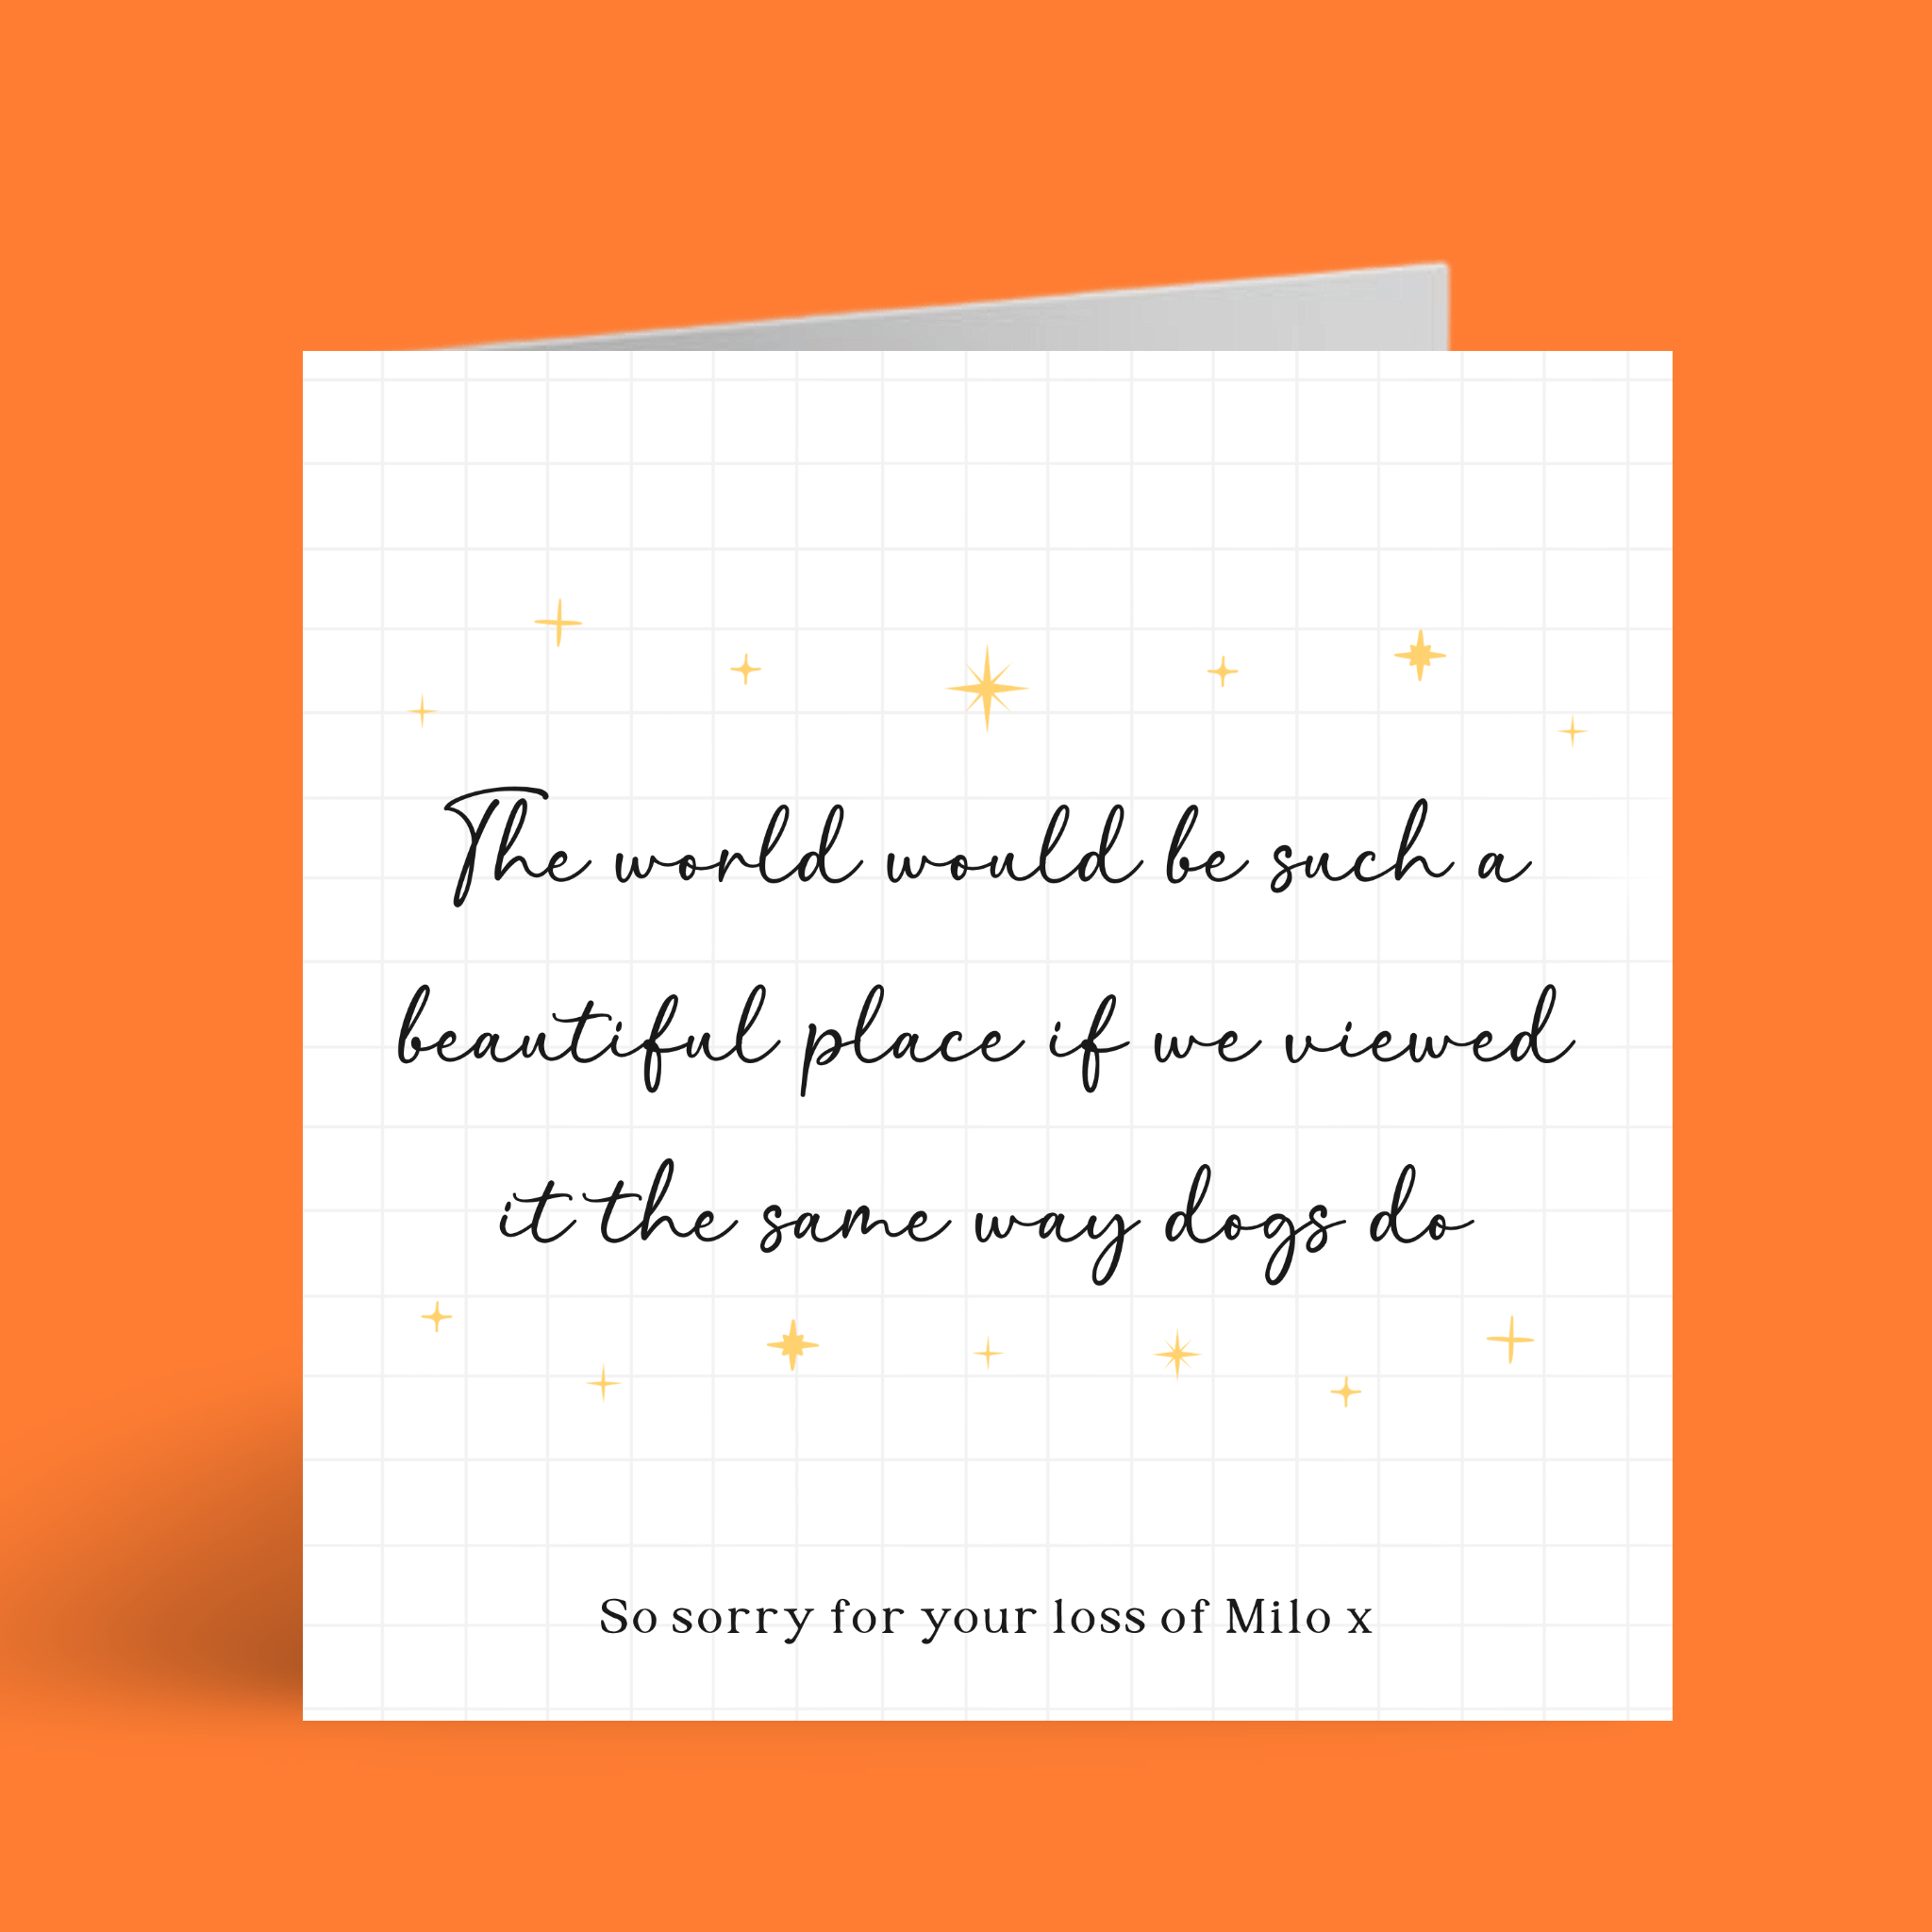 The world would be such a
beautiful place if we viewed
it the same way dogs do
So sorry for your loss of Milo x